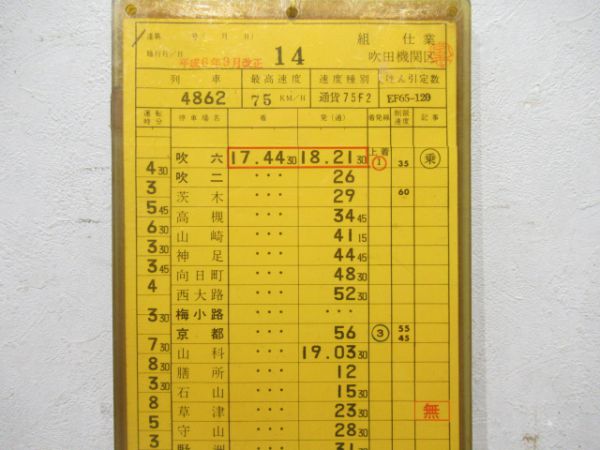 達第 号( 月 日)
施行月/日
平成6年3月改正
14
組 仕業
吹田機関区
列車 最高速度 速度種別 けん引定数
4862 75KM/H 通貨75F2 EF65-120
運転時分 停車場名 着 発(通) 着発線 制限速度 記事
吹六 17.44 30 18.21 30 上着 ① 35 乗
4 30
吹二 ・・・ 26
3
茨木 ・・・ 29 60
5 45
高槻 ・・・ 34 45
6 30
山崎 ・・・ 41 15
3 30
神足 ・・・ 44 45
3 45
向日町 ・・・ 48 30
4
西大路 ・・・ 52 30
梅小路 ・・・ ・・・
3 30
京都 ・・・ 56 ③ 55 45
7 30
山科 ・・・ 19.03 30
8 30
膳所 ・・・ 12
3 30
石山 ・・・ 15 30
8
草津 ・・・ 23 30 無
5
守山 ・・・ 28 30
3
野洲 ・・・ 31